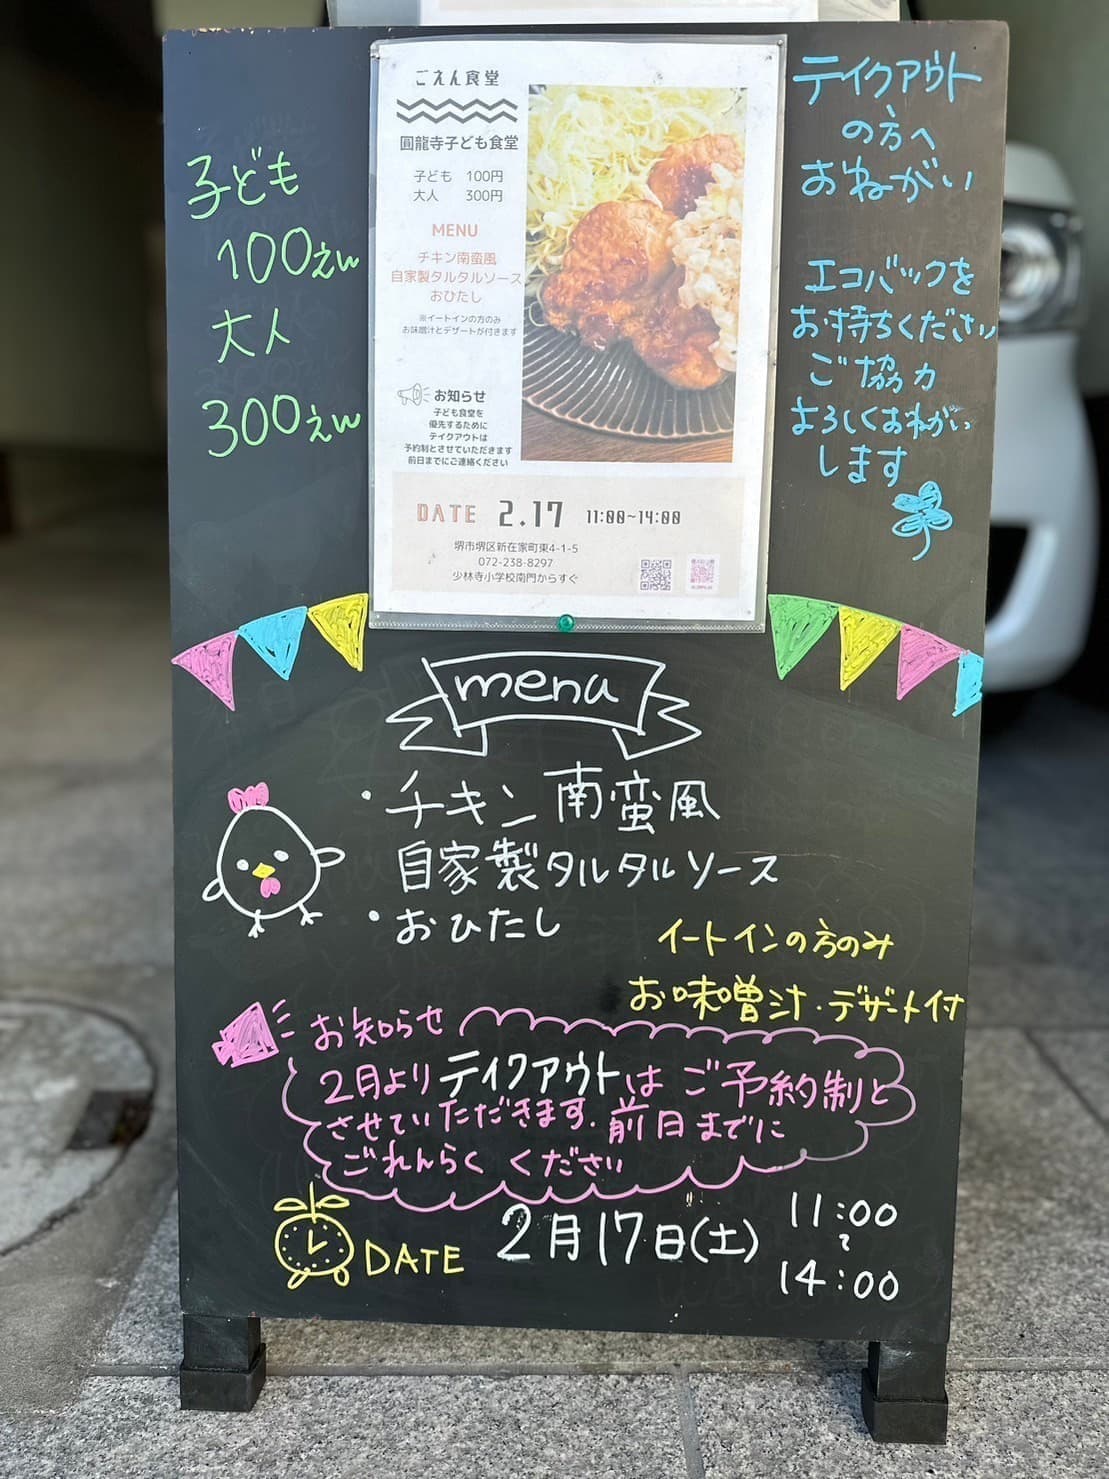 子ども
100えん
大人
300えん
ごえん食堂
圓龍寺子ども食堂
子ども 100円
大人 300円
MENU
チキン南蛮風
自家製タルタルソース
おひたし
※イートインの方のみ
お味噌汁とデザートが付きます
お知らせ
子ども食堂を
優先するために
テイクアウトは
予約制とさせていただきます
前日までにご連絡ください
DATE 2.17 11:00~14:00
堺市堺区新在家町東4-1-5
072-238-8297
少林寺小学校南門からすぐ
テイクアウト
の方へ
おねがい
エコバックを
お持ちください
ご協力
よろしくおねがい
します
menu
・チキン南蛮風
自家製タルタルソース
・おひたし
イートインの方のみ
お味噌汁・デザート付
お知らせ
2月よりテイクアウトはご予約制と
させていただきます.前日までに
ごれんらくください
DATE 2月17日(土) 11:00
~
14:00